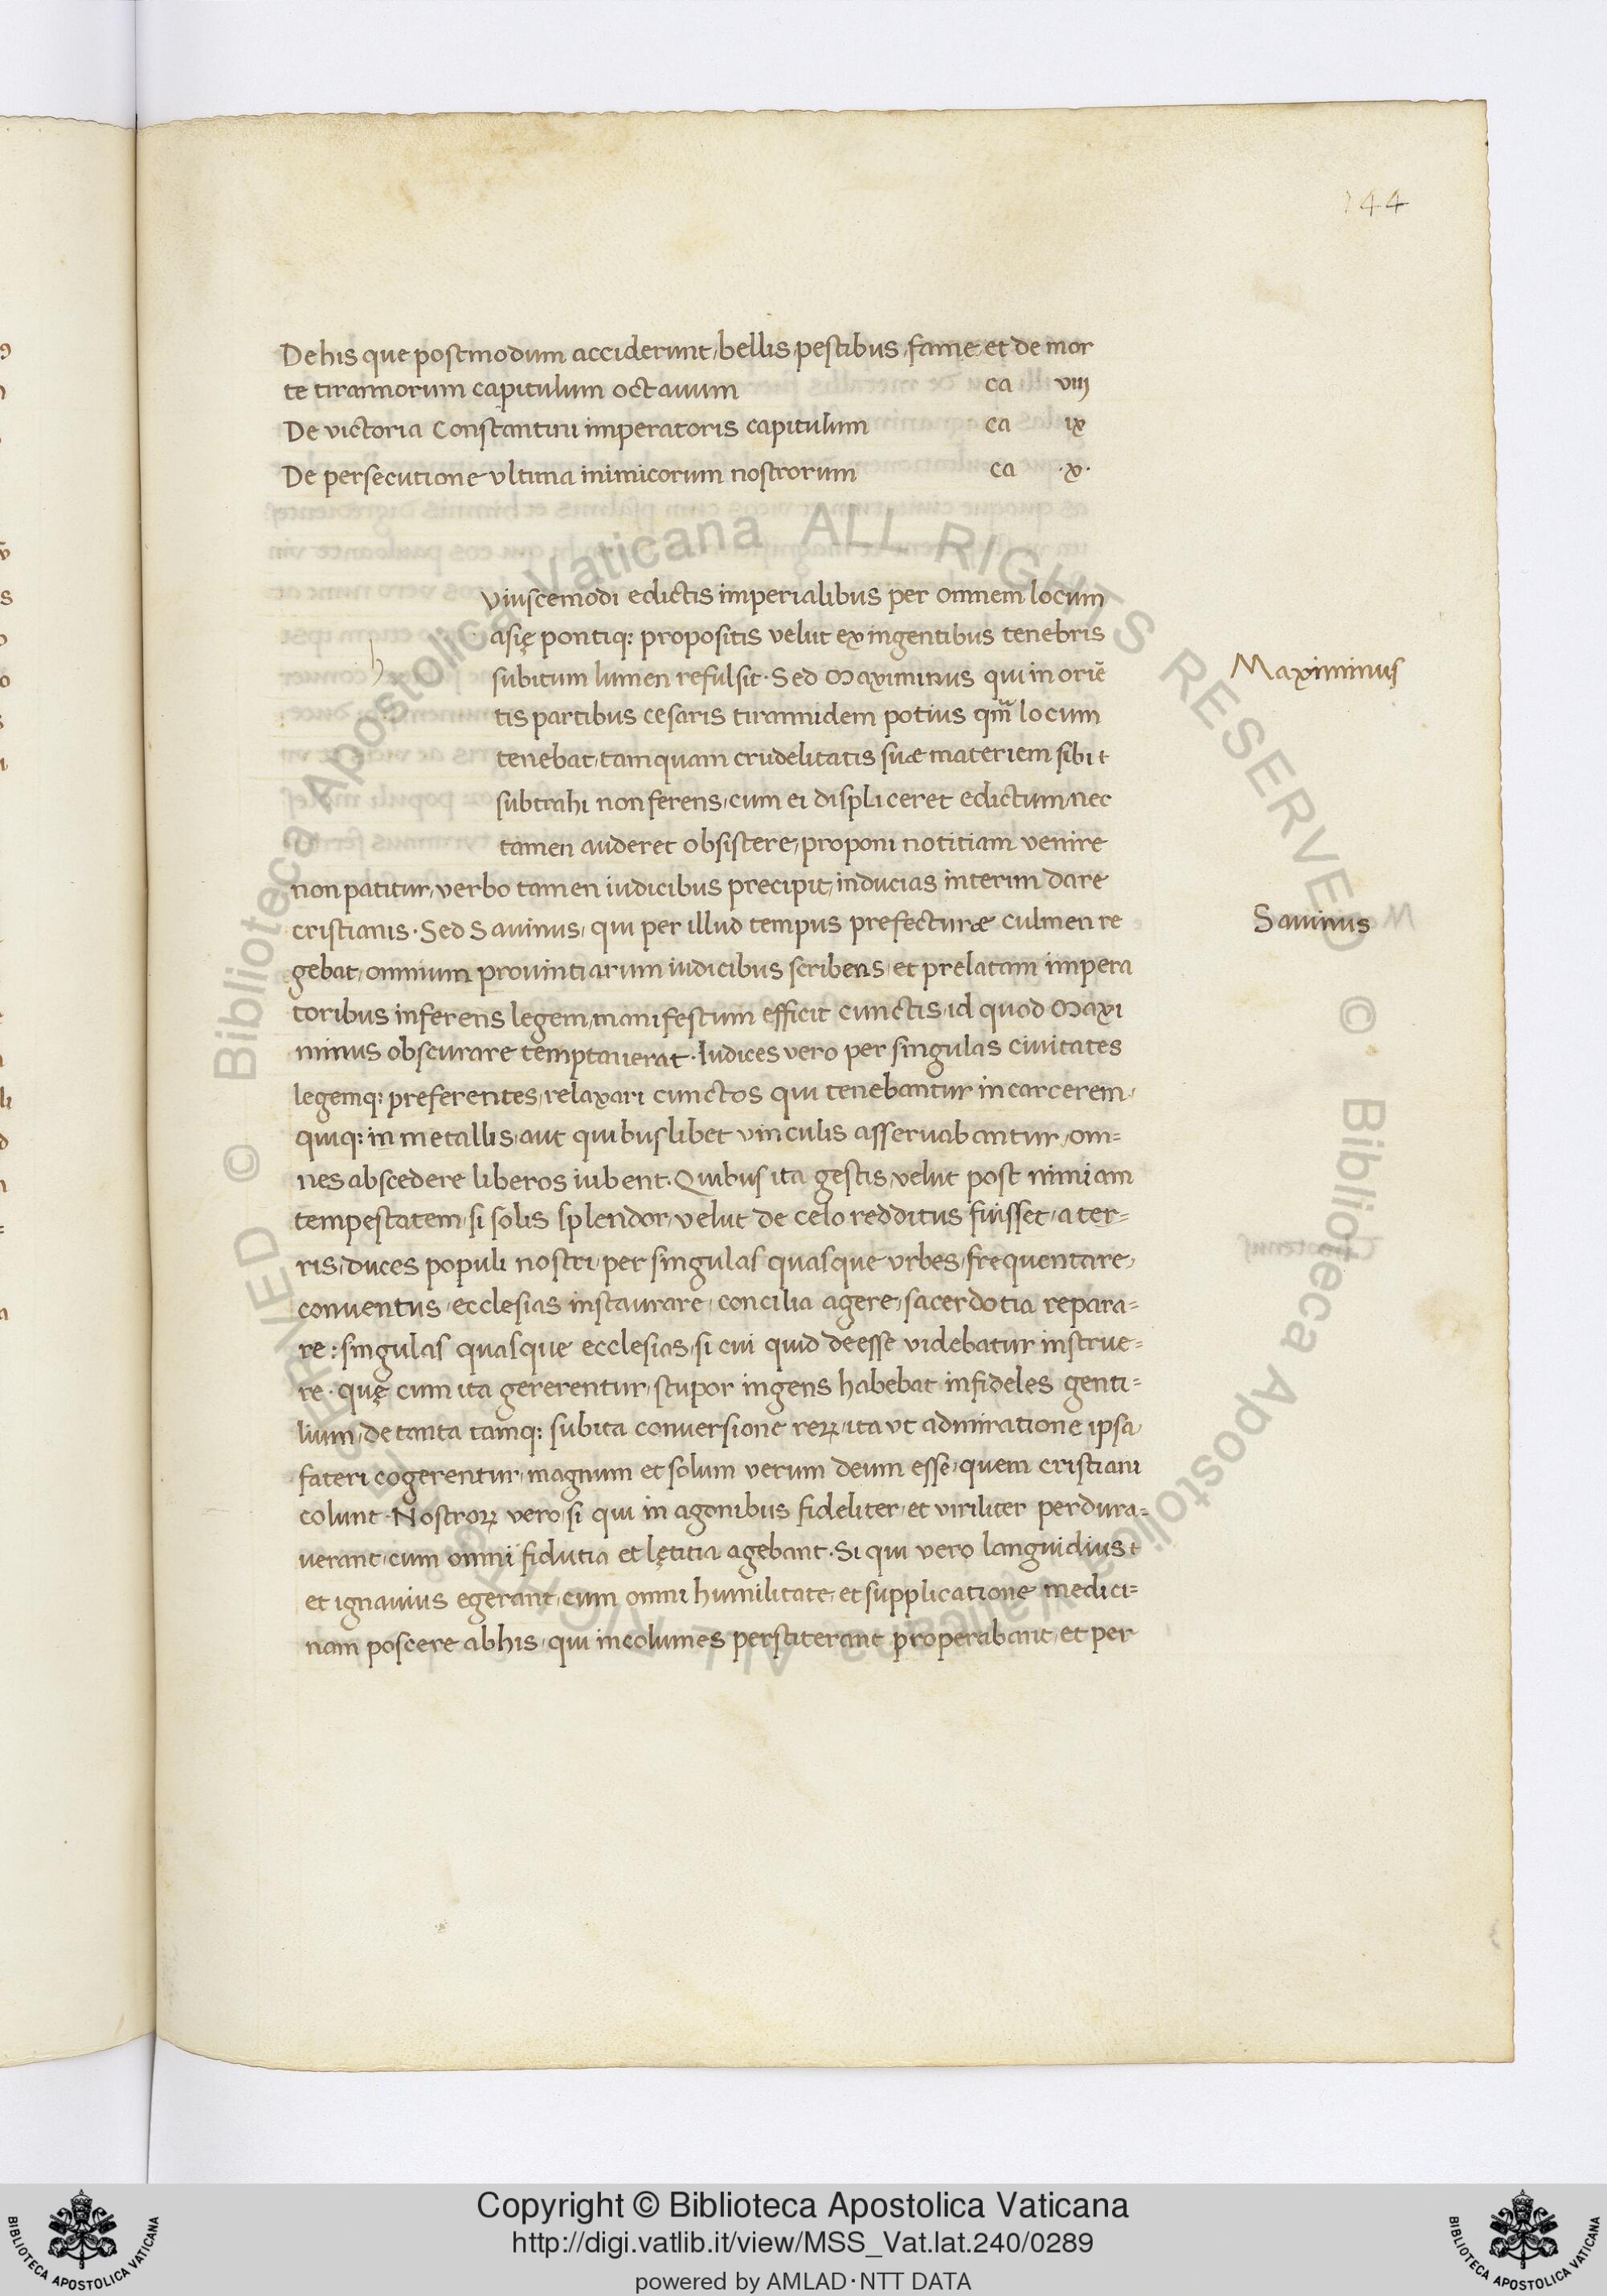 144
De his que postmodum acciderunt, bellis, pestibus, fame et de mor
te tirannorum capitulum octauum ca viii
De victoria Constantini imperatoris capitulum ca ix
De persecutione vltima inimicorum nostrorum ca .x.
h
viuscemodi edictis imperialibus per omnem locum
asię pontiq: propositis velut ex ingentibus tenebris
subitum lumen refulsit. Sed Maximinus qui in oriē
Maximinus
tis partibus cesaris tirannidem potius qm̄ locum
tenebat, tamquam crudelitatis suæ materiem sibi t
subtrahi non ferens, cum ei displiceret edictum, nec
tamen auderet obsistere, proponi notitiam venire
non patitur, verbo tamen iudicibus precipit, inducias interim dare
cristianis. Sed Sauinus, qui per illud tempus prefecturæ culmen re
Sauinus
gebat, omnium prouintiarum iudicibus scribens, et prelatam impera
toribus inferens legem, manifestum efficit cunctis, id quod Maxi
minus obscurare temptauerat. Iudices vero per singulas ciuitates
legemq: preferentes, relaxari cunctos qui tenebantur in carcerem,
quiq: in metallis, aut quibuslibet vinculis asseruabantur, om=
nes abscedere liberos iubent. Quibus ita gestis, velut post nimiam
tempestatem, si solis splendor, velut de celo redditus fuisset, a ter=
ris, duces populi nostri, per singulas quasque vrbes, frequentare,
conuentus, ecclesias instaurare, concilia agere, sacerdotia repara=
re: singulas quasque ecclesias, si cui quid deesse videbatur instrue=
re. quę cum ita gererentur, stupor ingens habebat infideles genti=
lium, de tanta tamq: subita conuersione reꝝ, ita vt admiratione ipsa,
fateri cogerentur, magnum et solum verum deum esse, quem cristiani
colunt. Nostroꝝ vero, si qui in agonibus fideliter, et viriliter perdura=
uerant, cum omni fidutia et lętitia agebant. Si qui vero languidius t
et ignauius egerant, cum omni humilitate, et supplicatione medici=
nam poscere ab his, qui incolumes perstiterant properabant, et per
© Biblioteca Apostolica Vaticana ALL RIGHTS RESERVED © Biblioteca Apostolica Vaticana ALL RIGHTS RESERVED
Copyright © Biblioteca Apostolica Vaticana
http://digi.vatlib.it/view/MSS_Vat.lat.240/0289
powered by AMLAD·NTT DATA
BIBLIOTECA APOSTOLICA VATICANA
BIBLIOTECA APOSTOLICA VATICANA